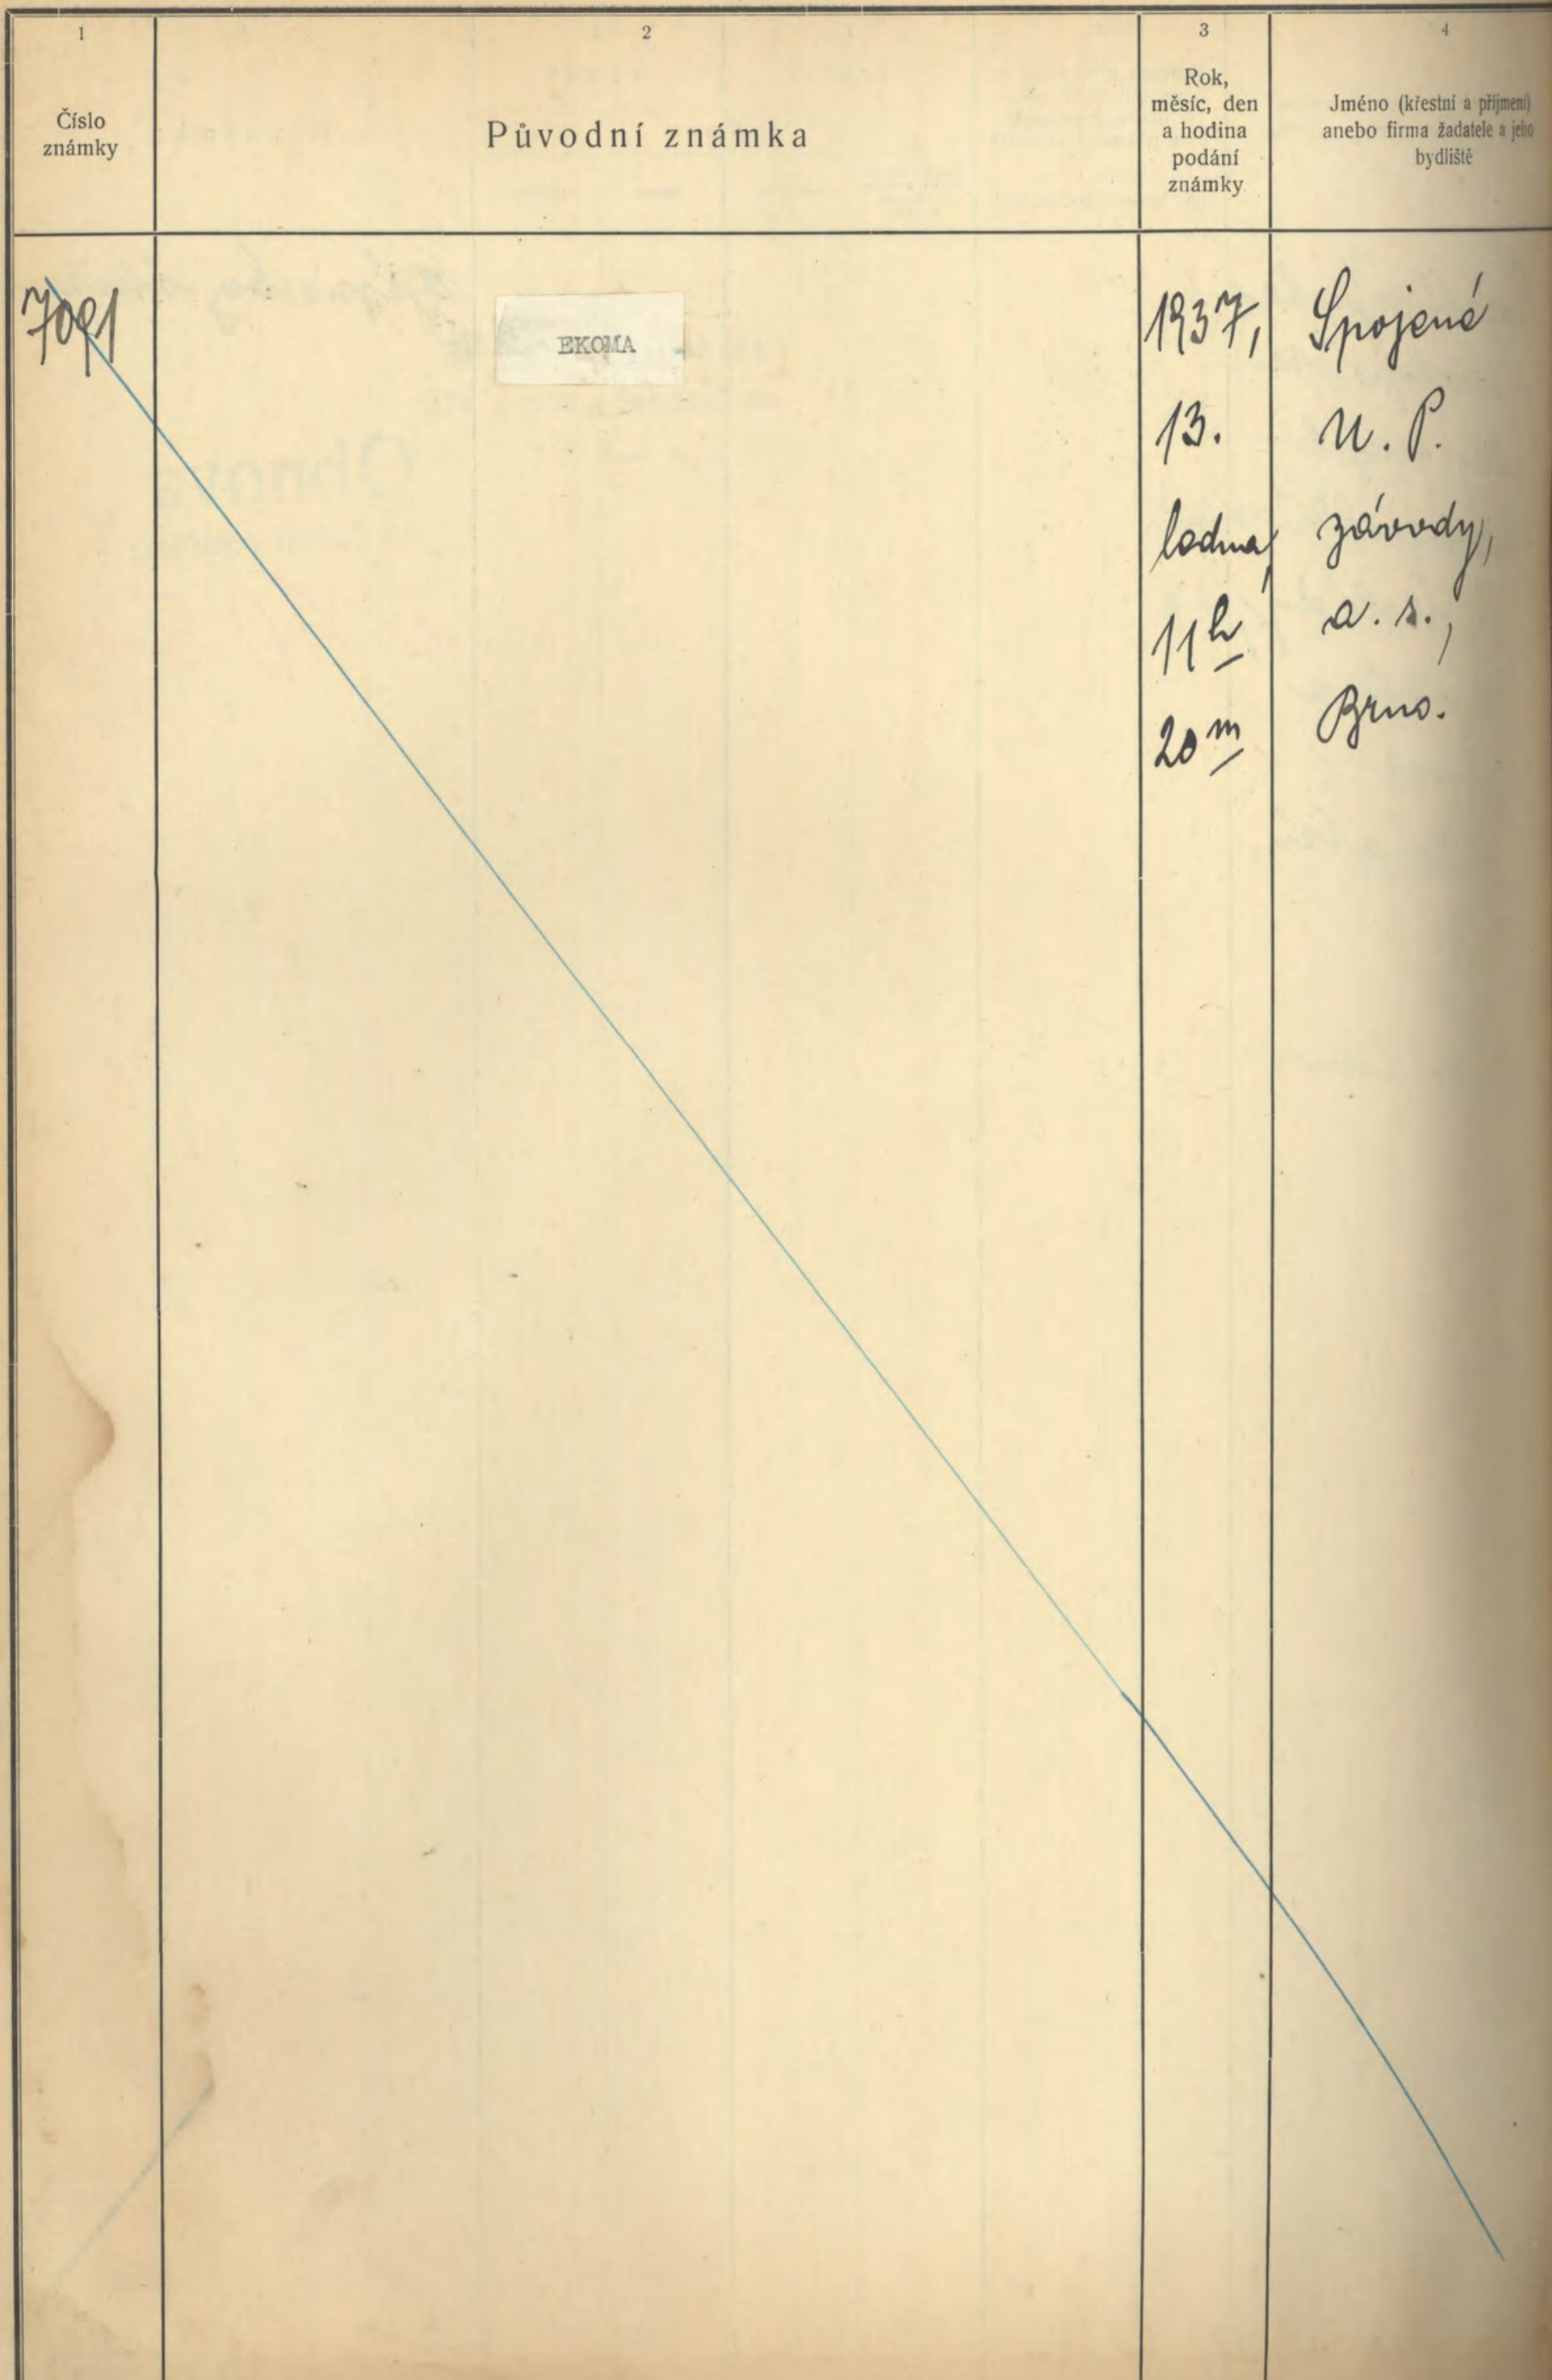 1
Číslo
známky
2
Původní známka
3
Rok,
měsíc, den
a hodina
podání
známky
4
Jméno (křestní a příjmení)
anebo firma žadatele a jeho
bydliště
7091
EKOMA
1937,
13.
ledna,
11h
20m
Spojené
U. P.
závody,
a. s.,
Brno.